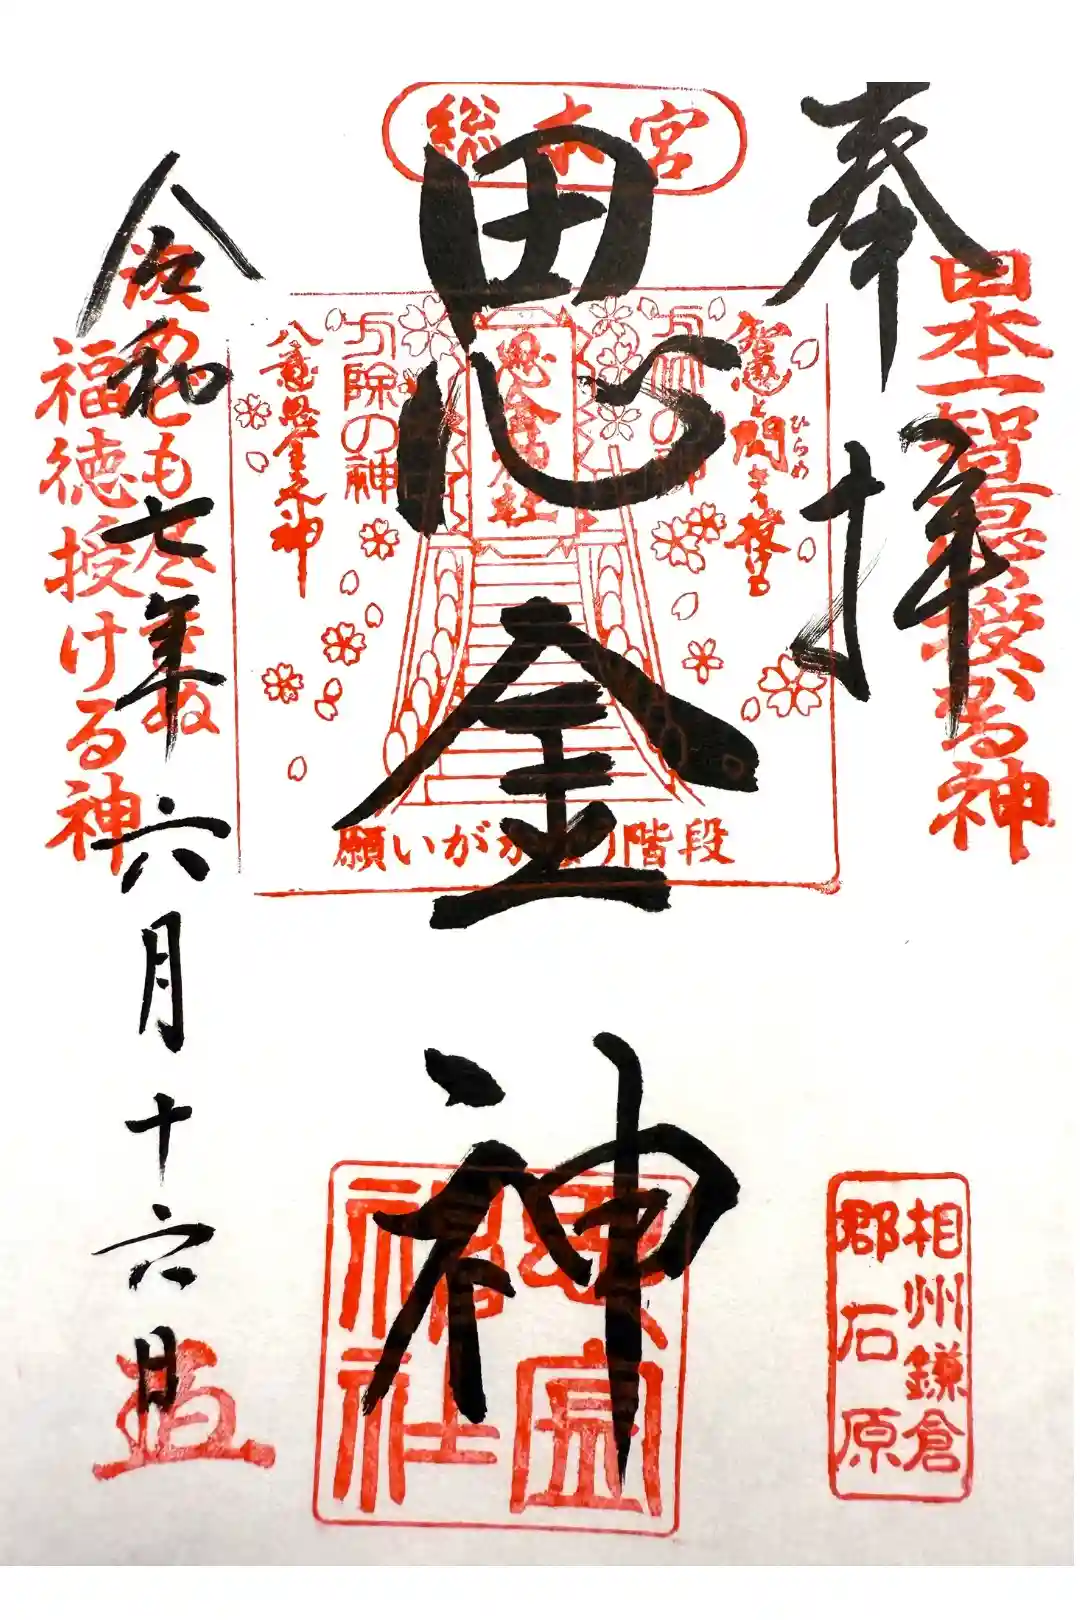 奉拝
日本一智恵授ける神
総本宮
思金神
智慧と閃き授ける
ひらめき
方除の神
思金神社
方除の神
願いがかなう階段
汲めども尽きぬ
福徳授ける神
令和七年六月十六日
思金神社
相州鎌倉
郡石原